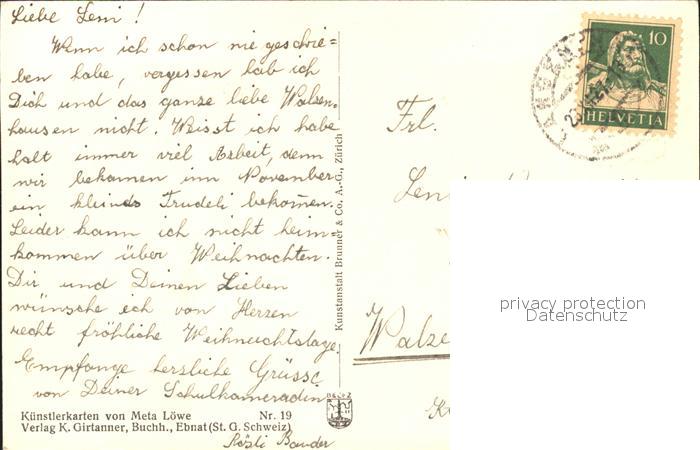 Liebe Leni!
Wenn ich schon nie geschrie=
ben habe, vergessen hab ich
Dich und das ganze liebe Walzen-
hausen nicht. Weisst ich habe
halt immer viel Arbeit, denn
wir bekamen im November
ein kleines Trudeli bekomen.
Leider kann ich nicht heim-
kommen über Weihnachten.
Dir und Deinen Lieben
wünsche ich von Herzen
recht fröhliche Weihnachtstage.
Empfange herzliche Grüsse
von Deiner Schulkameradin
Rösli Bander
Künstlerkarten von Meta Löwe Nr. 19
Verlag K. Girtanner, Buchh., Ebnat (St. G. Schweiz)
Kunstanstalt Brunner & Co. A.-G., Zürich
10
HELVETIA
Frl.
Leni
Walze
privacy protection
Datenschutz